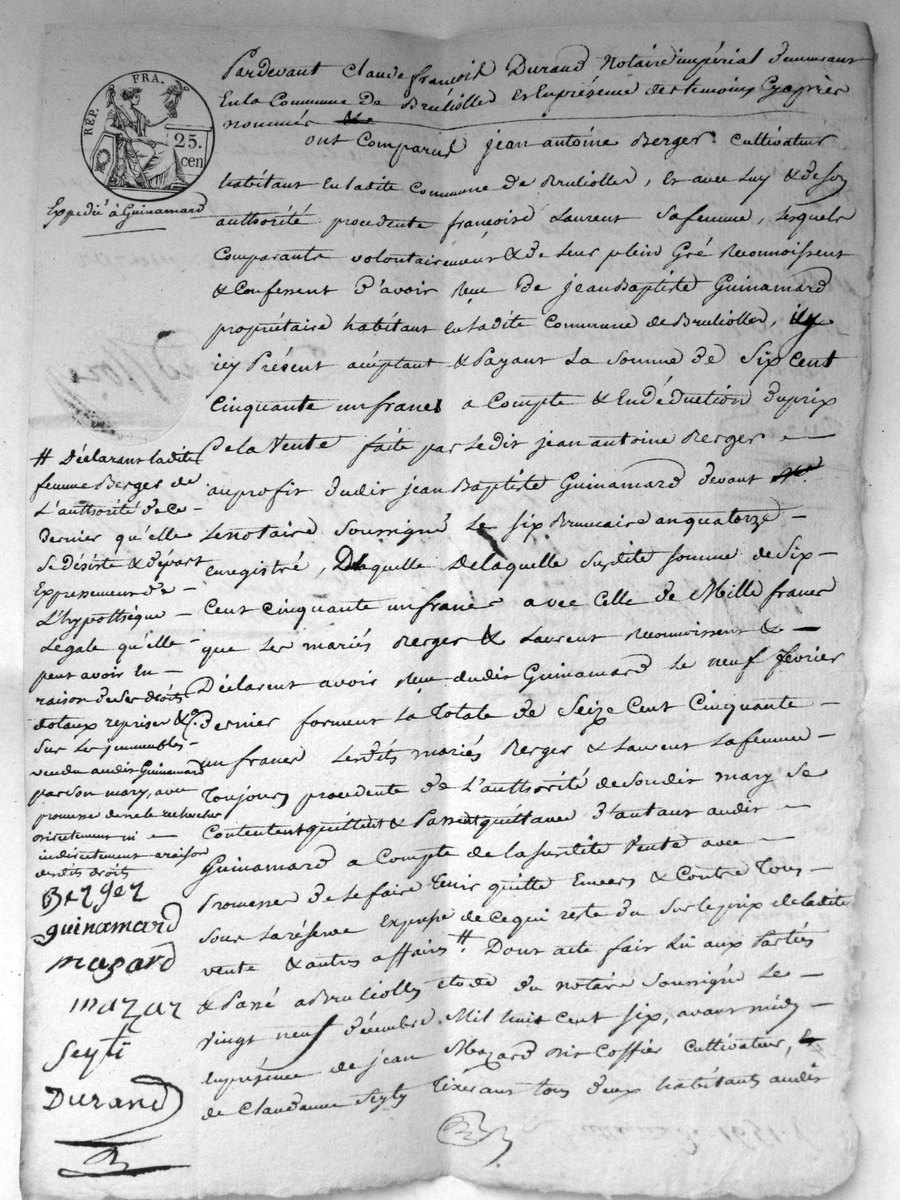 Pardevant Claude françois Durand Notaire impérial
En la Commune de Brullolles et En présence des temoins Cyaprès
nommés
ont Comparus jean antoine Berger Cultivateur
habitant en ladite Commune de Brullolles, et avec luy & de son
authorité procedente françoise Laurent sa femme, lesquels
Comparants volontairement & de leur plein Gré Reconnoissent
& Confessent d'avoir Reçu De jean Baptiste Guinamard
propriétaire habitant en ladite Commune de Brullolles,
icy Présent acéptant & Payant La Somme de Six Cent
Cinquante un francs a Compte & En déduction du prix
De la Vente faite par Ledit jean antoine Berger
au profit dudit jean Baptiste Guinamard devant
Le notaire Soussigné Le six Brumaire an quatorze
enregistré, De laquelle susdite somme de Six
Cent cinquante un francs avec Celle de Mille francs
que Les mariés Berger & Laurent Reconnoissent &
Déclarent avoir Reçu dudit Guinamard Le neuf février
dernier forment La Totale de Seize Cent Cinquante
un francs Lesdits mariés Berger & Laurent La femme
Toujours procedente de L'authorité de Soudit mary Se
Contentent quittent & Passent quittance d'autant audit
Guinamard a Compte de la susdite Vente avec
Promesse de Le faire Tenir quitte Envers & Contre Tous
sous La réserve Expresse de Ce qui reste du Sur le prix de ladite
vente & autres affaires # Dont acte fait Lu aux Parties
& Passé a Brullolles etude du notaire Soussigné Le
Vingt neuf décembre Mil huit Cent Six, avant midy
En présence de jean Mazard dit Coffier Cultivateur,
de Claude Seyty Tixerant tous deux habitants audit
RÉP. FRA.
25.
cen
Expedié à Guinamard
# Déclarant ladite
femme Berger de
L'authorité de Ce
Dernier qu'elle
Se désiste & départ
Expressement de
L'hypothèque
Légale qu'elle
peut avoir En
raison de Ses droits
dotaux reprises &c
Sur Les immeubles
vendu audit Guinamard
par son mary, avec
promesse de ne le rechercher
directement ni
indirectement a raison
desdits droits
Berger
guinamard
magard
mazar
Seyti
Durand